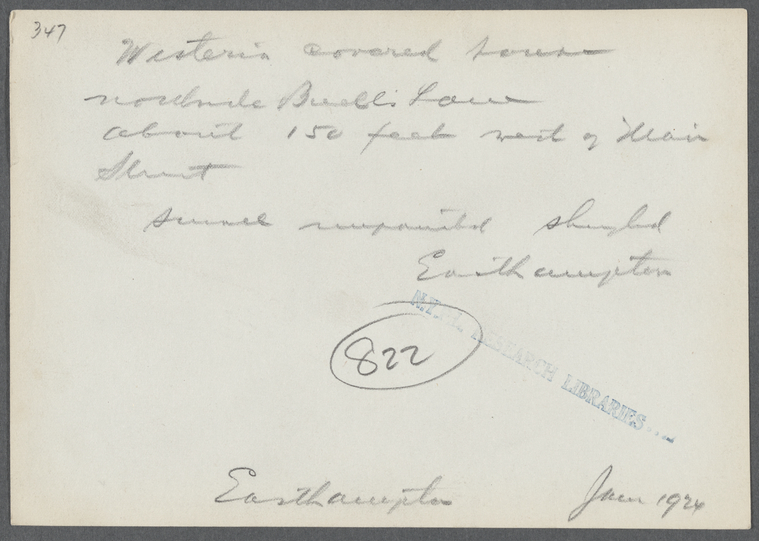 347
Westeria covered house
northside Buell's Lane
about 150 feet west of Main
Street
small unpainted shingled
Easthampton
822
N.Y.P.L. RESEARCH LIBRARIES
Easthampton
1924